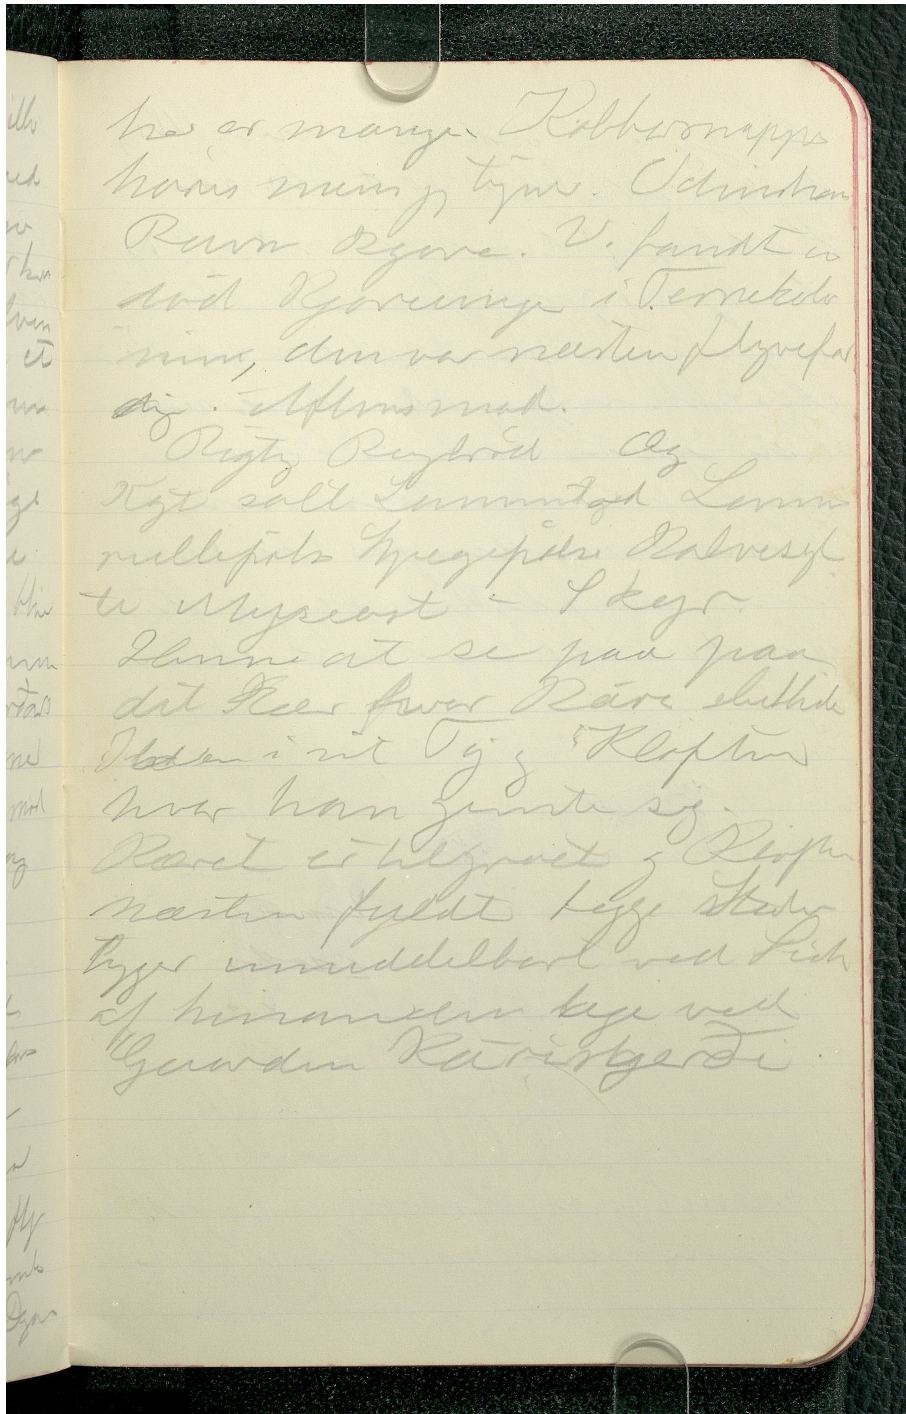 her er mange. Kobbersneppe
høres men er tynd. Odinshane
Ravn Kjove. Vi fandt en
død Kjoveunge i Ternekolo
nien, den var næsten flyvefær
dig. Aftensmad.
Rigtig Rugbrød Æg
Kogt salt Lammekød Lamme
rullepølse Spegepølse Kalvesyl
te Myseost - Skyr
Henne at se paa paa
det Kær hvor Kári slukkede
Ilden i sit Tøj og Kløften
hvor han gemte sig.
Kæret er tilgroet og Kløften
næsten fyldt begge Steder
ligger umiddelbart ved Siden
af hinanden lige ved
Gaarden Káragerði.